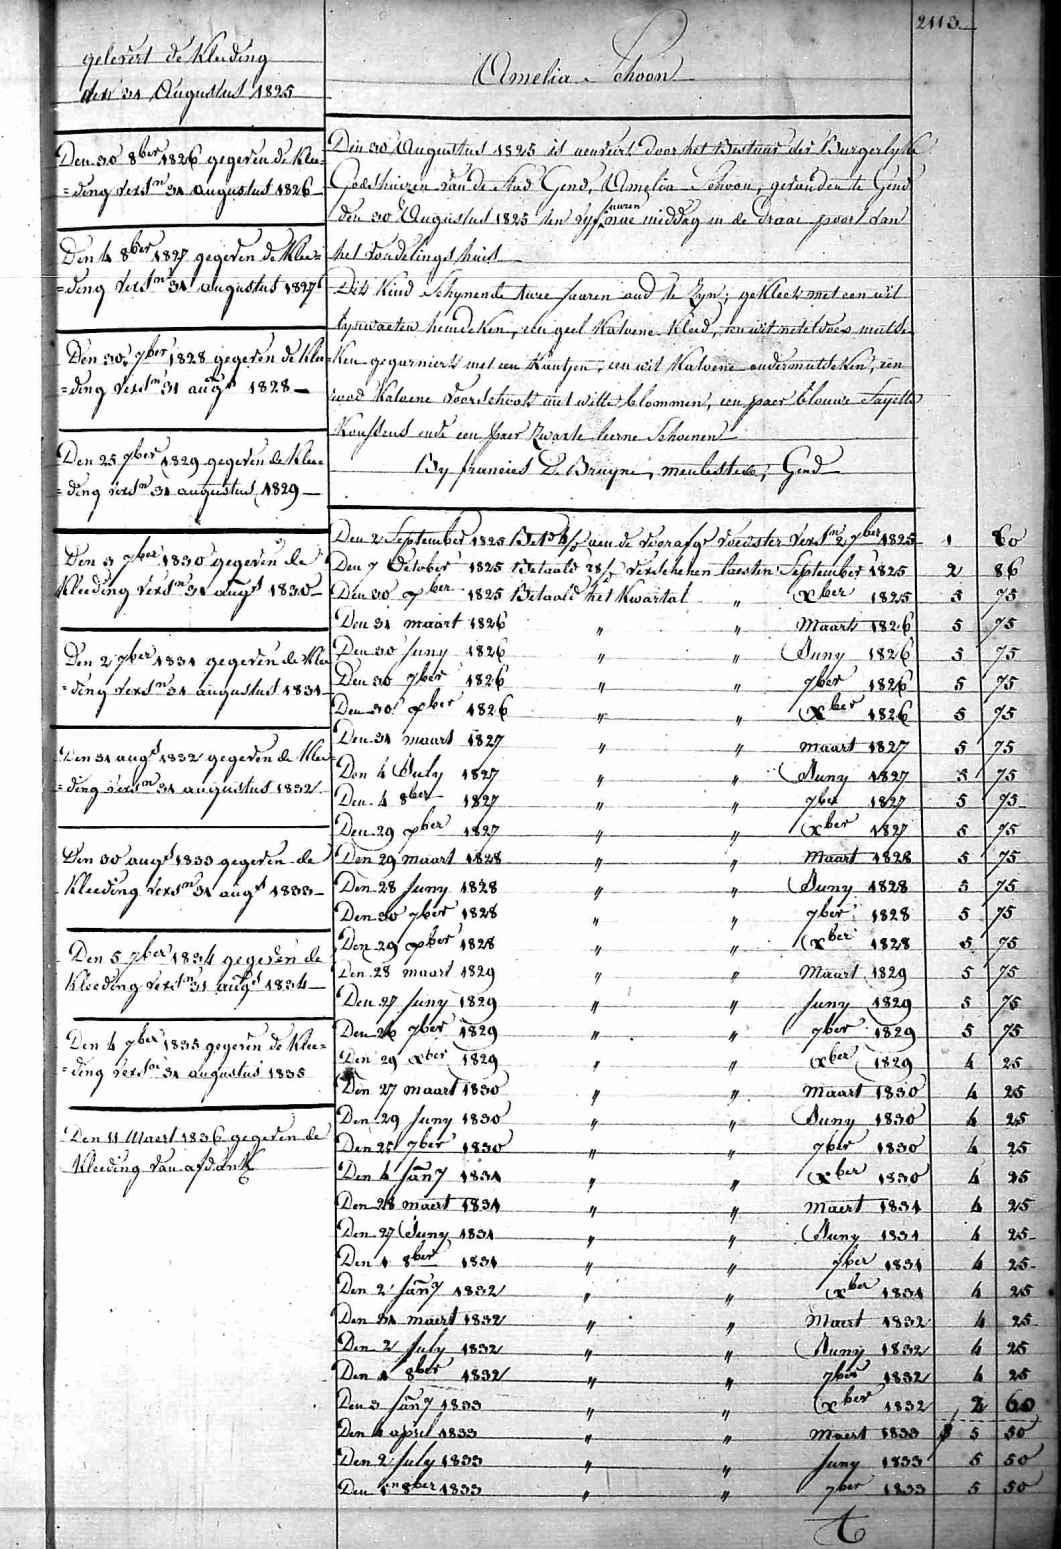 2113
gelevert de Kleeding
vers 31 Augustus 1825
Den 30 8ber 1826 gegeven de Klee=
=ding versn 31 augustus 1826
Den 4 8ber 1827 gegeven de Klee=
=ding versn 31 augustus 1827
Den 30 7ber 1828 gegeven de Klee
=ding versn 31 augs 1828
Den 25 7ber 1829 gegeven de Klee=
=ding versn 31 augustus 1829
Den 3 7ber 1830 gegeven de
Kleeding versn 31 augs 1830
Den 2 7ber 1831 gegeven de Klee
=ding versn 31 augustus 1831
Den 31 augs 1832 gegeven de Klee=
=ding versn 31 augustus 1832
Den 30 augs 1833 gegeven de
Kleeding versn 31 augs 1833
Den 5 7ber 1834 gegeven de
Kleeding versn 31 augs 1834
Den 4 7ber 1835 gegeven de Klee=
=ding versn 31 augustus 1835
Den 11 Maert 1836 gegeven de
Kleeding van afdank
Amelia Schoon
Den 30 Augustus 1825 is aenveirt door het Bestuur der Burgerlyke
Godshuizen van de Stad Gend, Amelia Schoon, gevonden te Gend
den 30 Augustus 1825 ten vyf uuren nae middag in de Draai poort van
het vondelings huis
Dit Kind Schynende twee Jaaren oud te Zyn; gekleet met een wit
lynwaeten hemdeken, een geel Katoene Kleed, een wit neteldoex mutse
Ken gegarniert met een Kantjen, een wit Katoene ondermutseken, een
rood Katoene voorschoot met witte blommen, een paer blouwe Sayette
Koussens ende een paer Zwarte leerne Schoenen
By francies D. Bruyne, meulestede, Gend
Den 2 September 1825 Betd aen de voorafge voedster versn 2 7ber 1825 1 60
Den 7 October 1825 Betaald 28/ verschenen laesten September 1825 2 86
Den 30 xber 1825 Betaald het Kwartal " xber 1825 5 75
Den 31 maart 1826 " " Maart 1826 5 75
Den 30 Juny 1826 " " Juny 1826 5 75
Den 30 7ber 1826 " " 7ber 1826 5 75
Den 30 xber 1826 " " xber 1826 5 75
Den 31 maart 1827 " " maart 1827 5 75
Den 4 July 1827 " " Juny 1827 5 75
Den 4 8ber 1827 " " 7ber 1827 5 75
Den 29 xber 1827 " " xber 1827 5 75
Den 29 maart 1828 " " Maart 1828 5 75
Den 28 Juny 1828 " " Juny 1828 5 75
Den 30 7ber 1828 " " 7ber 1828 5 75
Den 29 xber 1828 " " xber 1828 5 75
Den 28 maart 1829 " " Maart 1829 5 75
Den 27 Juny 1829 " " Juny 1829 5 75
Den 26 7ber 1829 " " 7ber 1829 5 75
Den 29 xber 1829 " " xber 1829 4 25
Den 27 maart 1830 " " Maart 1830 4 25
Den 29 Juny 1830 " " Juny 1830 4 25
Den 25 7ber 1830 " " 7ber 1830 4 25
Den 4 Jany 1831 " " xber 1830 4 25
Den 28 maert 1831 " " maert 1831 4 25
Den 27 Juny 1831 " " Juny 1831 4 25
Den 1 8ber 1831 " " 7ber 1831 4 25
Den 2 Jany 1832 " " xber 1831 4 25
Den 31 maert 1832 " " Maert 1832 4 25
Den 2 July 1832 " " Juny 1832 4 25
Den 1 8ber 1832 " " 7ber 1832 4 25
Den 3 Jany 1833 " " xber 1832 2 60
Den 4 april 1833 " " Maert 1833 5 50
Den 2 July 1833 " " Juny 1833 5 50
Den 1n 8ber 1833 " " 7ber 1833 5 50